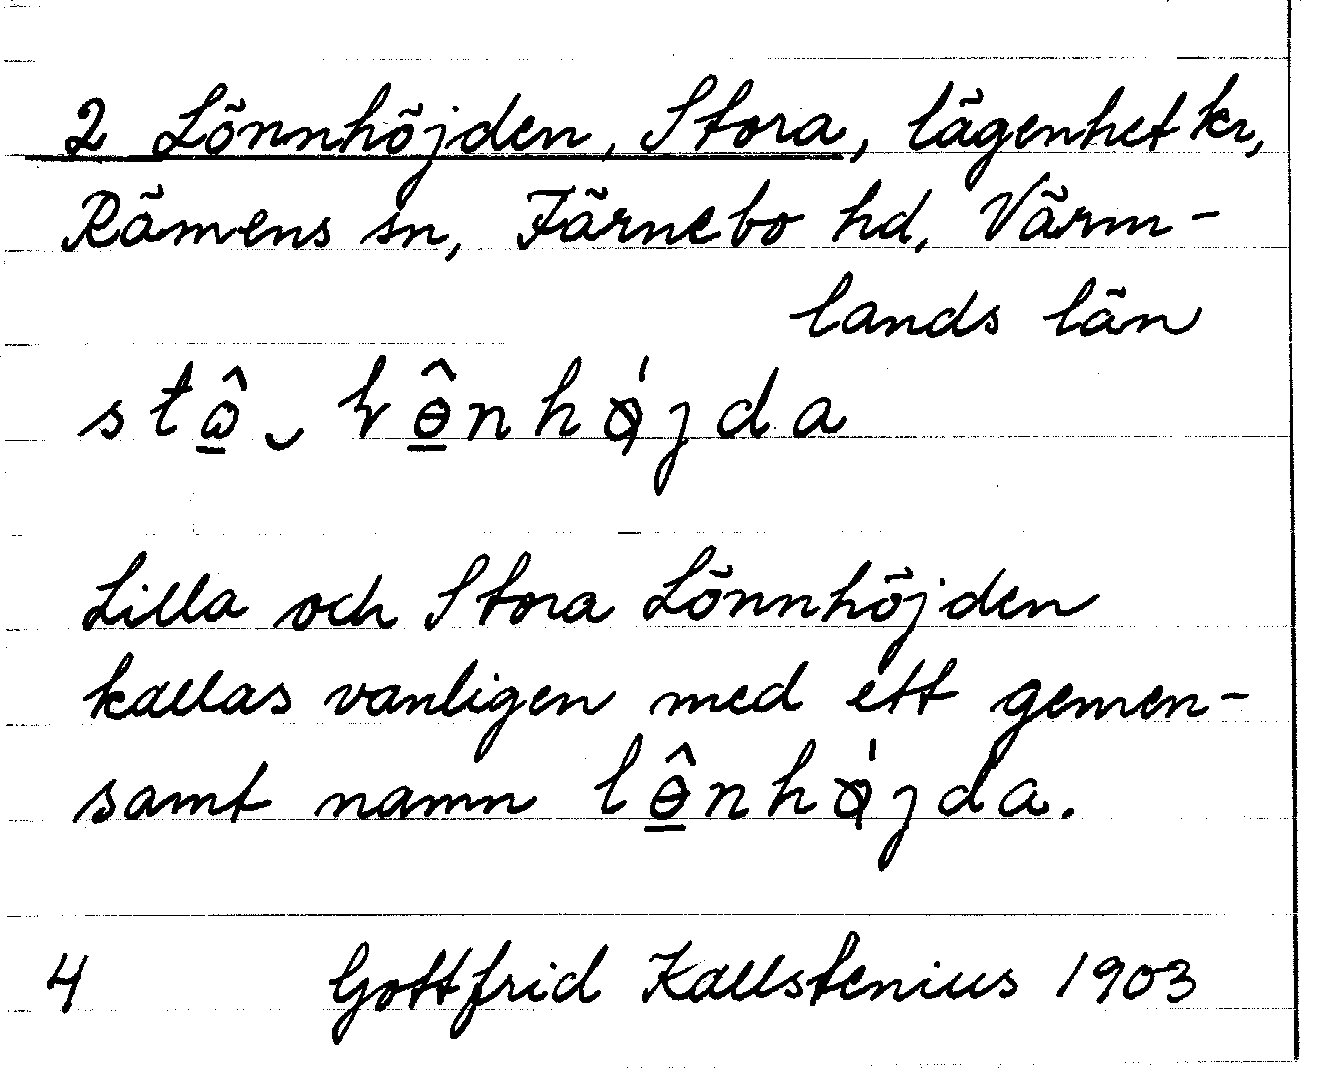 2 Lönnhöjden, Stora, lägenhet kr,
Rämens sn, Färnebo hd, Värm-
lands län
Lilla och Stora Lönnhöjden
kallas vanligen med ett gemen-
samt namn
4 Gottfrid Kallstenius 1903